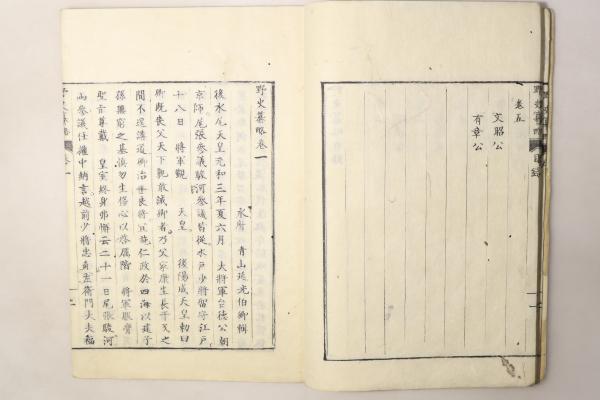 卷五
文昭公
有章公
野史纂略卷一
水府 青山延光伯卿輯
後水尾天皇元和三年夏六月 大將軍台德公朝
京師尾張參議駿河參議皆從水戶少將留守江戶
十八日 將軍覲 天皇 後陽成天皇勅曰
卿既喪父天下親敢誡卿者乃父家康生長干戈之
間不遑講道卿治世長將宜施仁政於四海以建子
孫無窮之基慎勿生侈心以啓厲階 將軍服膺
聖言尊戴 皇室終身弗懈云二十一日尾張駿河
兩參議任權中納言越前少將忠直左衛門大夫福